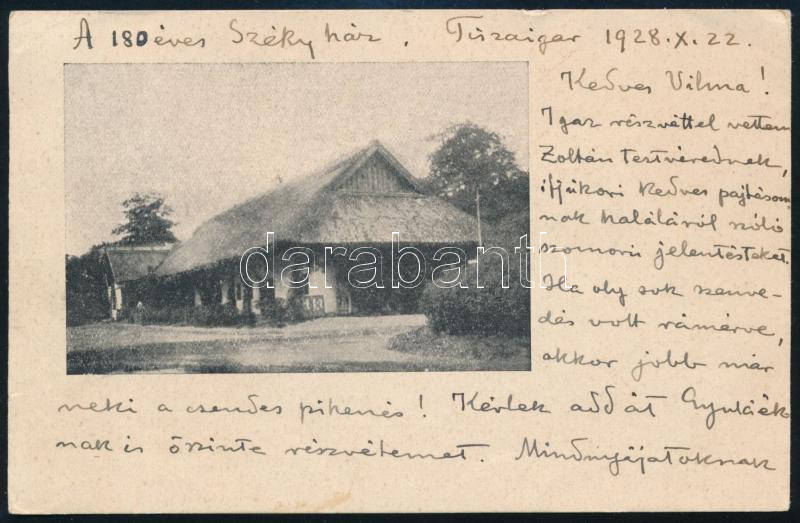 A 180 éves Széky ház. Tiszaigar 1928.X.22.
Kedves Vilma!
Igaz részvéttel vettem
Zoltán testvérednek,
ifjúkori kedves pajtásom-
nak haláláról szóló
szomorú jelentésteket.
Ha oly sok szenve-
dés volt rámérve,
akkor jobb már
neki a csendes pihenés! Kérlek add át Gyuláék-
nak is őszinte részvétemet. Mindnyájatoknak
darabanth.com